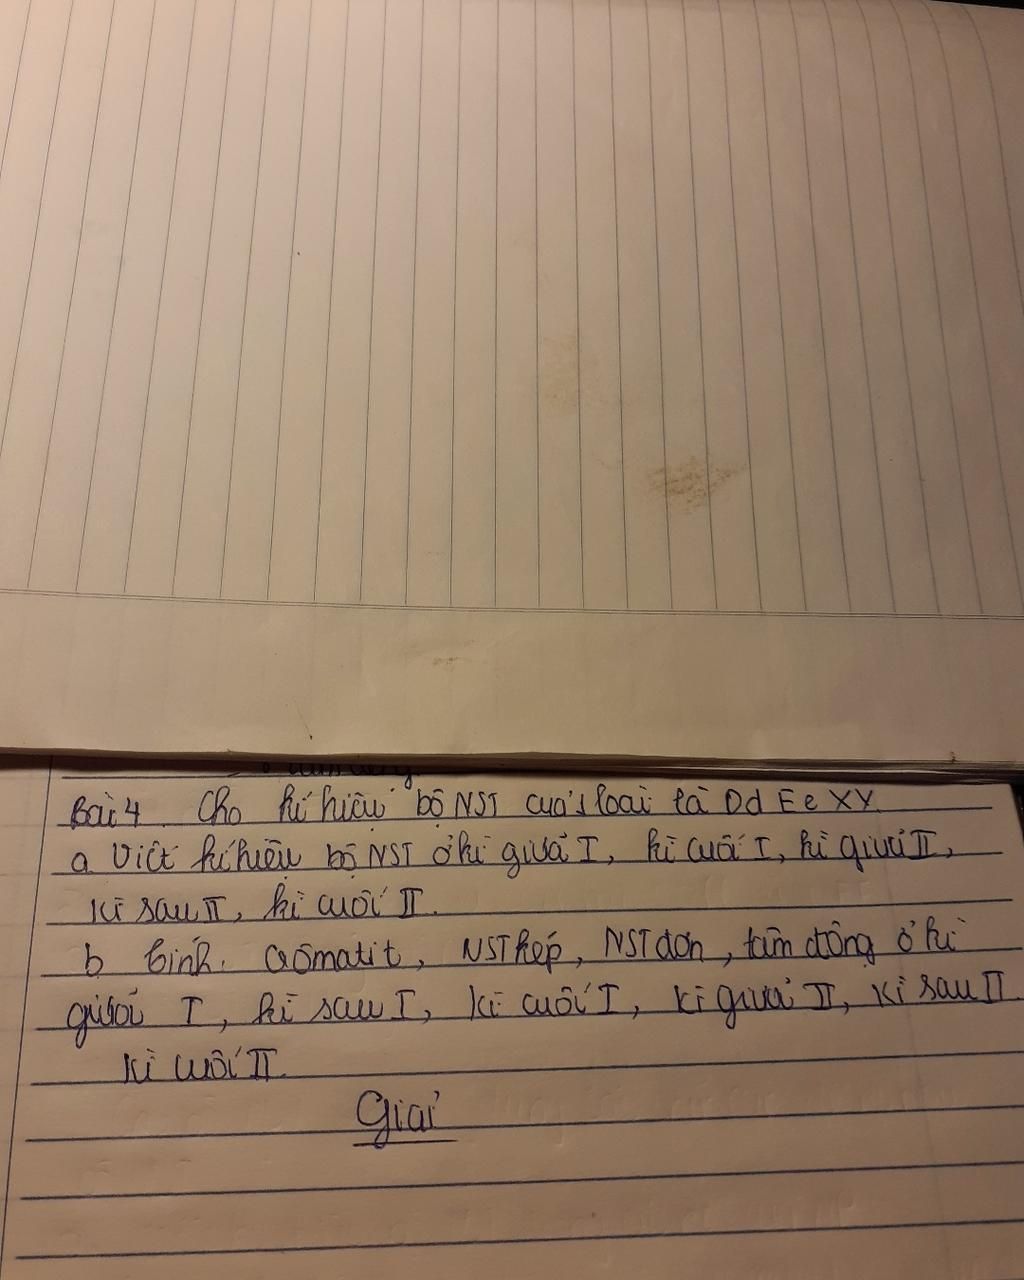 Bài 4. Cho kí hiệu bộ NST của 1 loài là Dd Ee XY.
a Viết kí hiệu bộ NST ở kì giữa I, kì cuối I, kì giữa II,
kì sau II, kì cuối II.
b tính. crômatit, NST kép, NST đơn, tâm động ở kì
giữa I, kì sau I, kì cuối I, kì giữa II, kì sau II
kì cuối II.
Giải